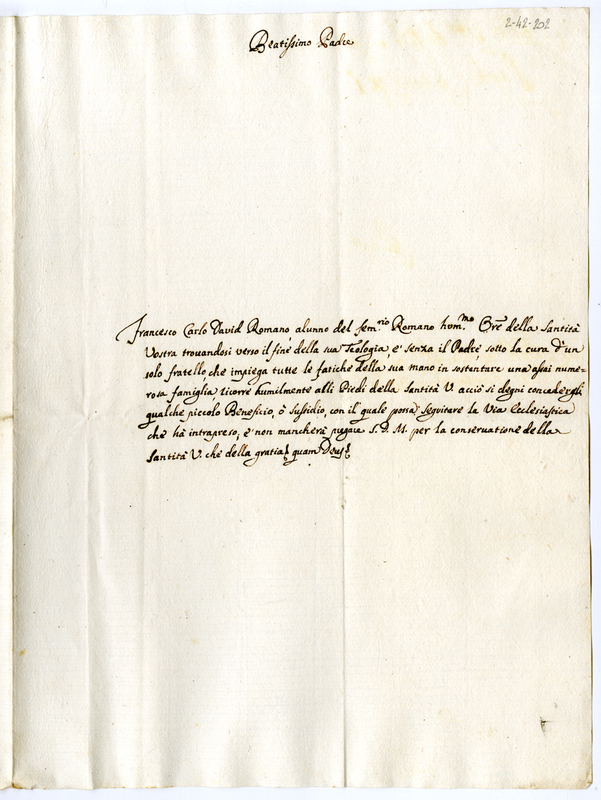 2-42-202
Beatissimo Padre
Francesco Carlo David Romano alunno del Sem.rio Romano hum.mo Ore della Santità
Vostra trouandosi verso il fine della sua Teologia, e senza il Padre sotto la cura d'un
solo fratello che impiega tutte le fatiche della sua mano in sostentare una assai nume=
rosa famiglia ricorre humilmente alli Piedi della Santità V. acciò si degni concedergli
qualche piccolo Beneficio, ò sussidio, con il quale possa seguitare la Via Ecclesiastica
che hà intrapreso, e non mancherà pregare S. D. M. per la conservatione della
Santità V. che della gratia quam Deus